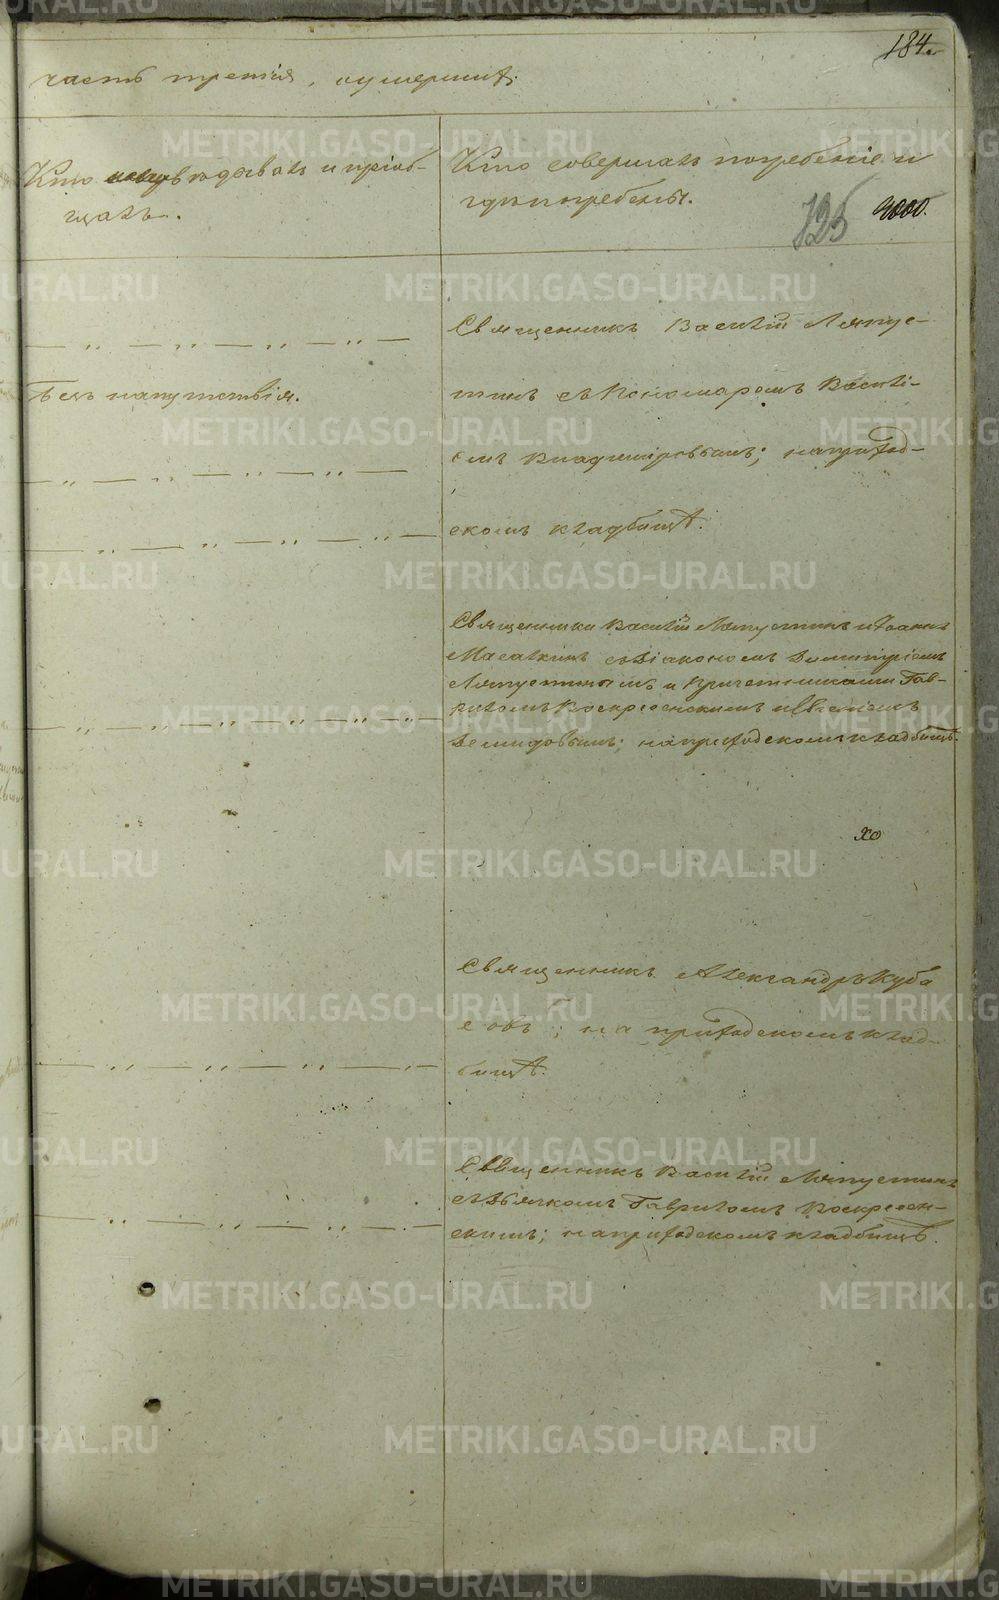 184.
часть третія, о умершихъ
Кто исповѣдывалъ и пріоб-
щалъ.
Кто совершалъ погребеніе и
гдѣ погребены.
125
Священникъ Василій Ляпус-
Безъ напутствія.
тинъ съ Пономаромъ Василі-
емъ Владиміровымъ; на приход-
скомъ кладбищѣ.
Священники Василій Ляпустинъ и Іоаннъ
съ Діакономъ Димитріемъ
Ляпустинымъ и Причетниками Гав-
риломъ Воскресенскимъ и
Демидовымъ; на приходскомъ кладбищѣ.
хо
Священникъ Александръ Куба
совъ; на приходскомъ клад-
бищѣ.
Священникъ Василій Ляпустинъ
съ Дьячкомъ Гавриломъ Воскресен-
скимъ; на приходскомъ кладбищѣ.
METRIKI.GASO-URAL.RU